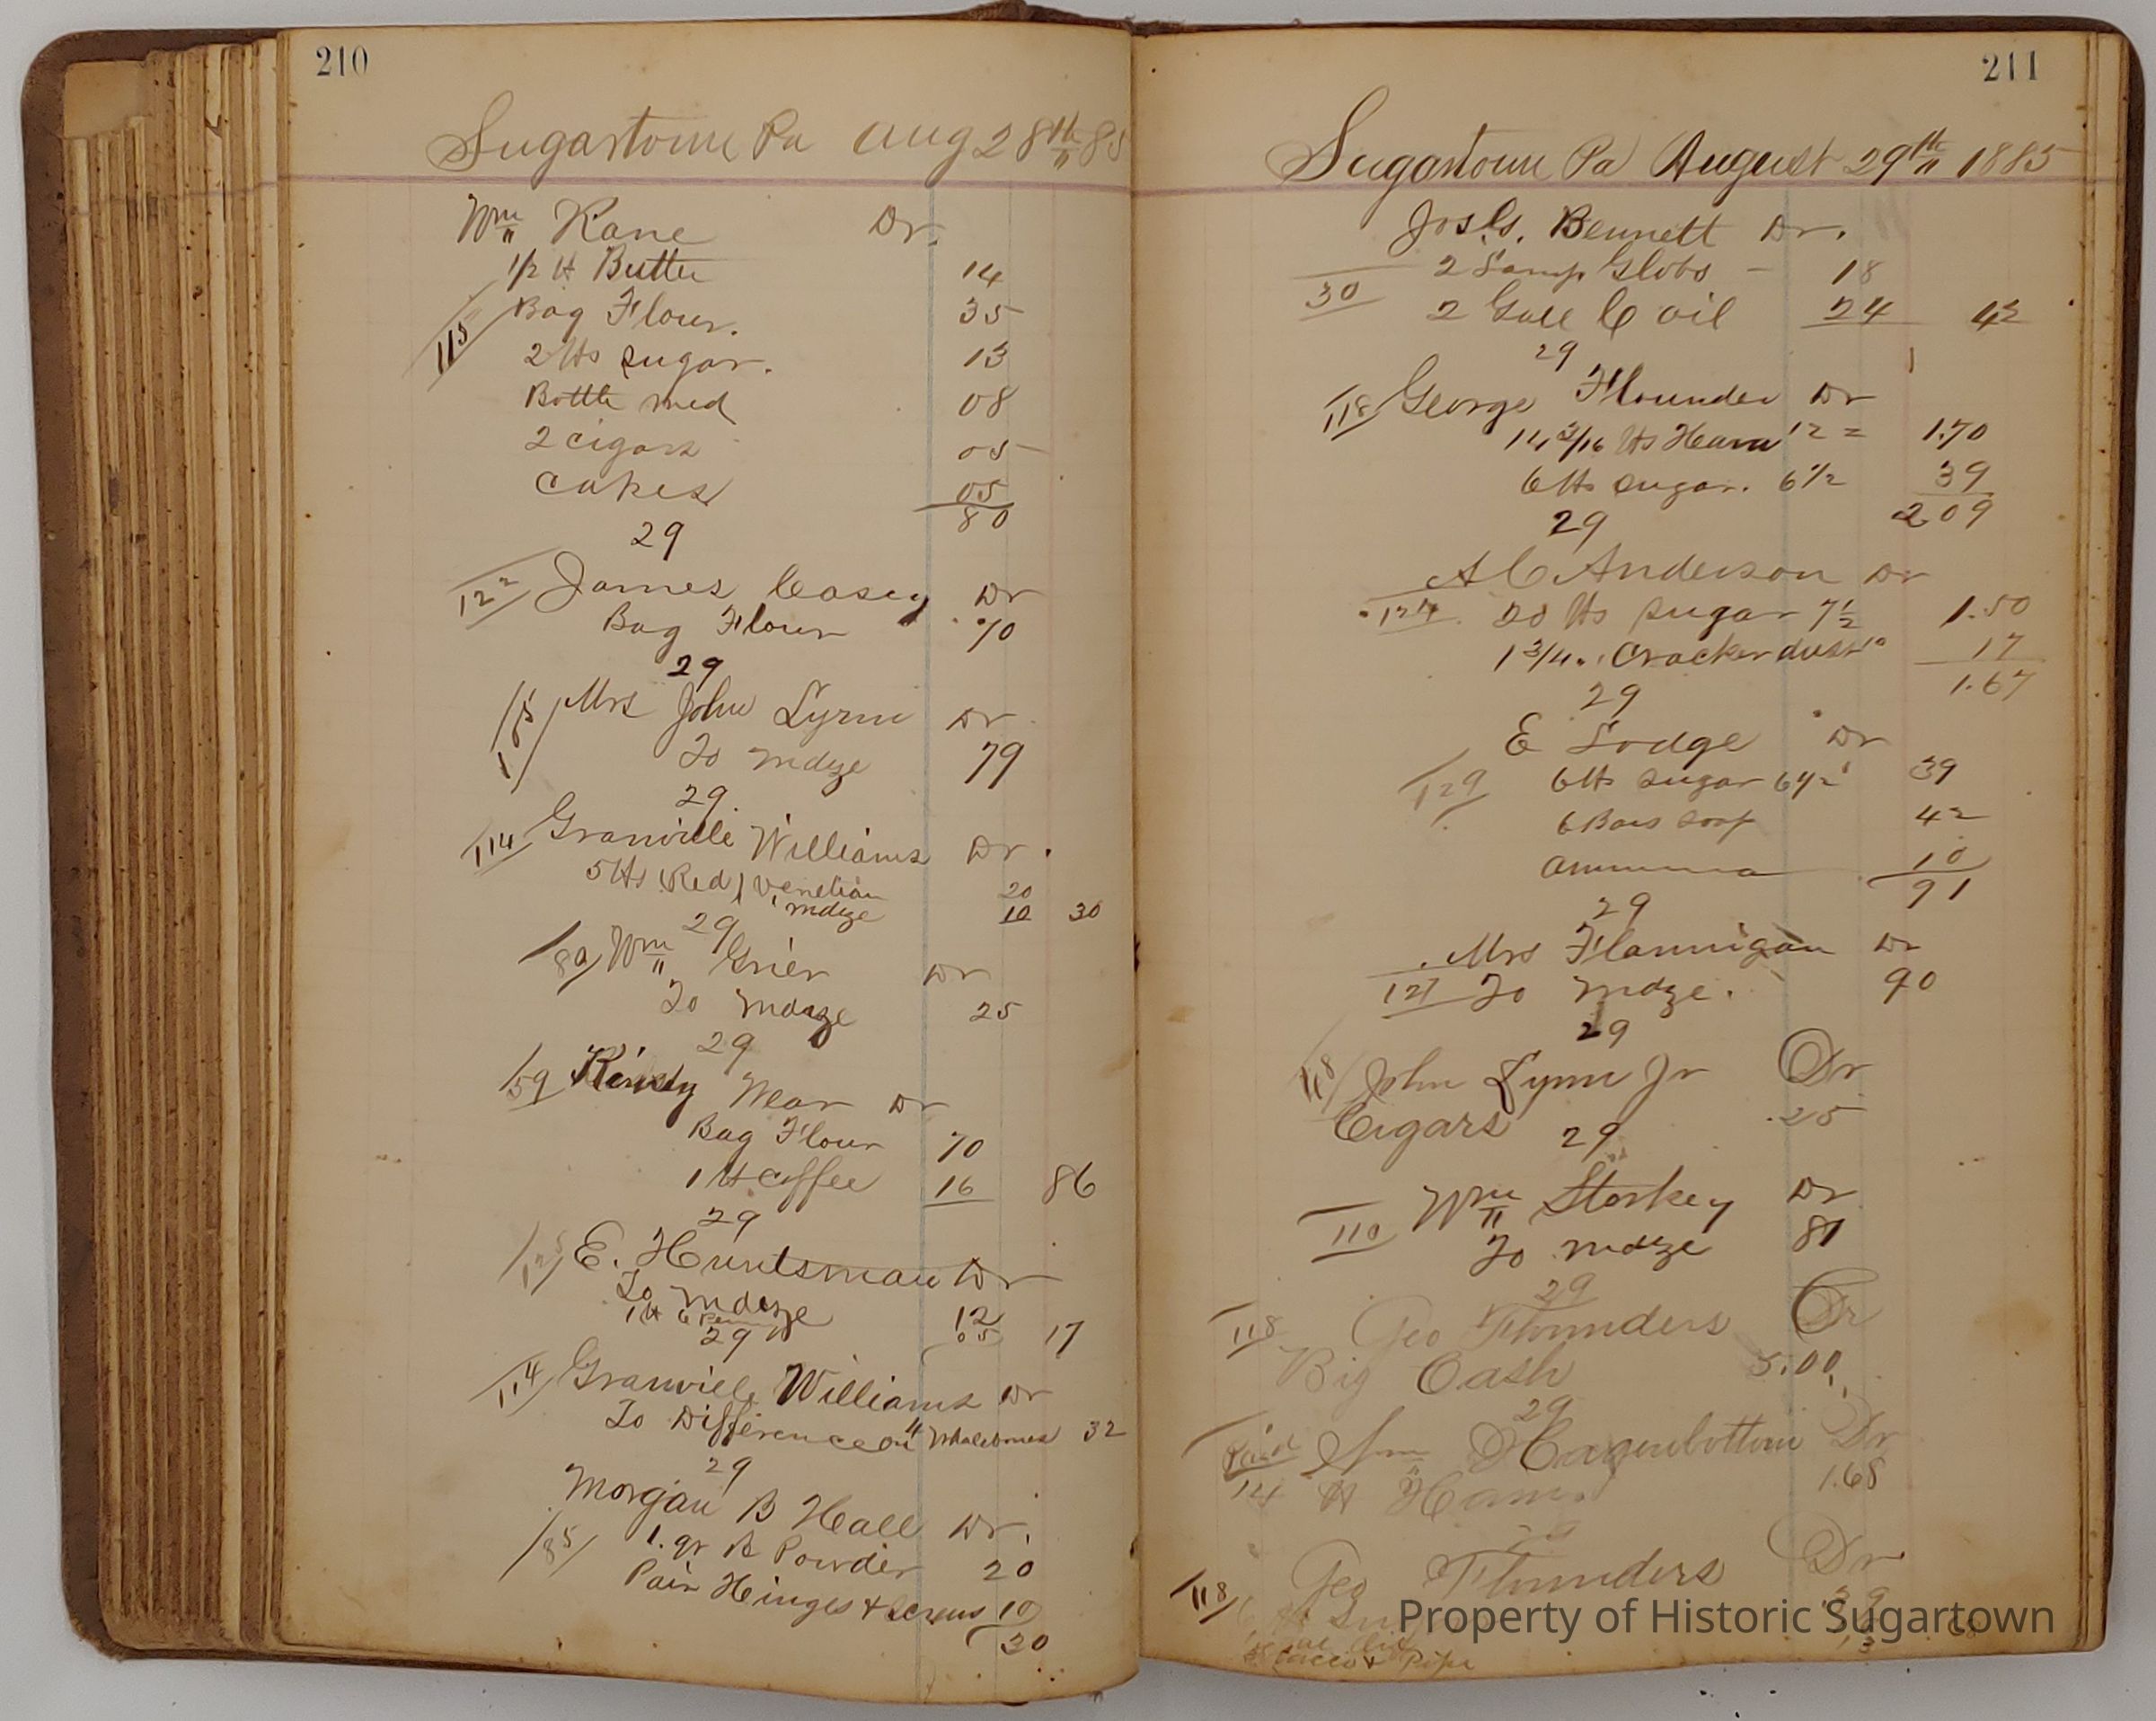 210
Sugartown Pa Aug 28th 85
Wm Kane Dr.
1/2 lb Butter 14
115 Bag Flour. 35
2 lbs sugar. 13
Bottle med 08
2 cigars 05
Cakes 05
80
29
122 James Casey Dr
Bag Flour .70
29
Mrs John Lynn Dr
To mdze 79
29.
114 Granville Williams Dr.
5 lbs (Red) Venetian 20
mdze 10 30
29
80 Wm Grier Dr
To mdze 25
29
59 Near Dr
Bag Flour 70
1 lb coffee 16 86
29
125 E. Huntsman Dr
To mdze 12
1 lb 6 Penny 05 17
29
114 Granville Williams Dr
To Difference on 4 Whalebones 32
29
Morgan B Hall Dr.
85 1. qr R Powder 20
Pair Hinges & Screws 10
30
211
Sugartown Pa August 29th 1885
Jos G. Bennett Dr.
2 Lamp Globs - 18
30 2 Gall C oil 24 42
29
118 George Flounder Dr
14 3/16 lbs Ham 12 = 1.70
6 lbs sugar. 6 1/2 39
209
29
A C Anderson Dr
124 20 lbs sugar 7 1/2 1.50
1 3/4 " Cracker dust 10 17
1.67
29
E Lodge Dr
129 6 lbs sugar 6 1/2 39
6 Bars soap 42
Ammona 10
91
29
Mrs Flannigan Dr
127 To mdze. 90
29
118 John Lynn Jr Dr
Cigars .25
29
110 Wm Storkey Dr
To mdze 81
29
118 Geo Flounders Cr
By Cash 5.00
29
Paid Wm Hagenbottom Dr
14 lb Ham. 1.68
29
118 Geo Flounders Dr
39
Pipe
Property of Historic Sugartown